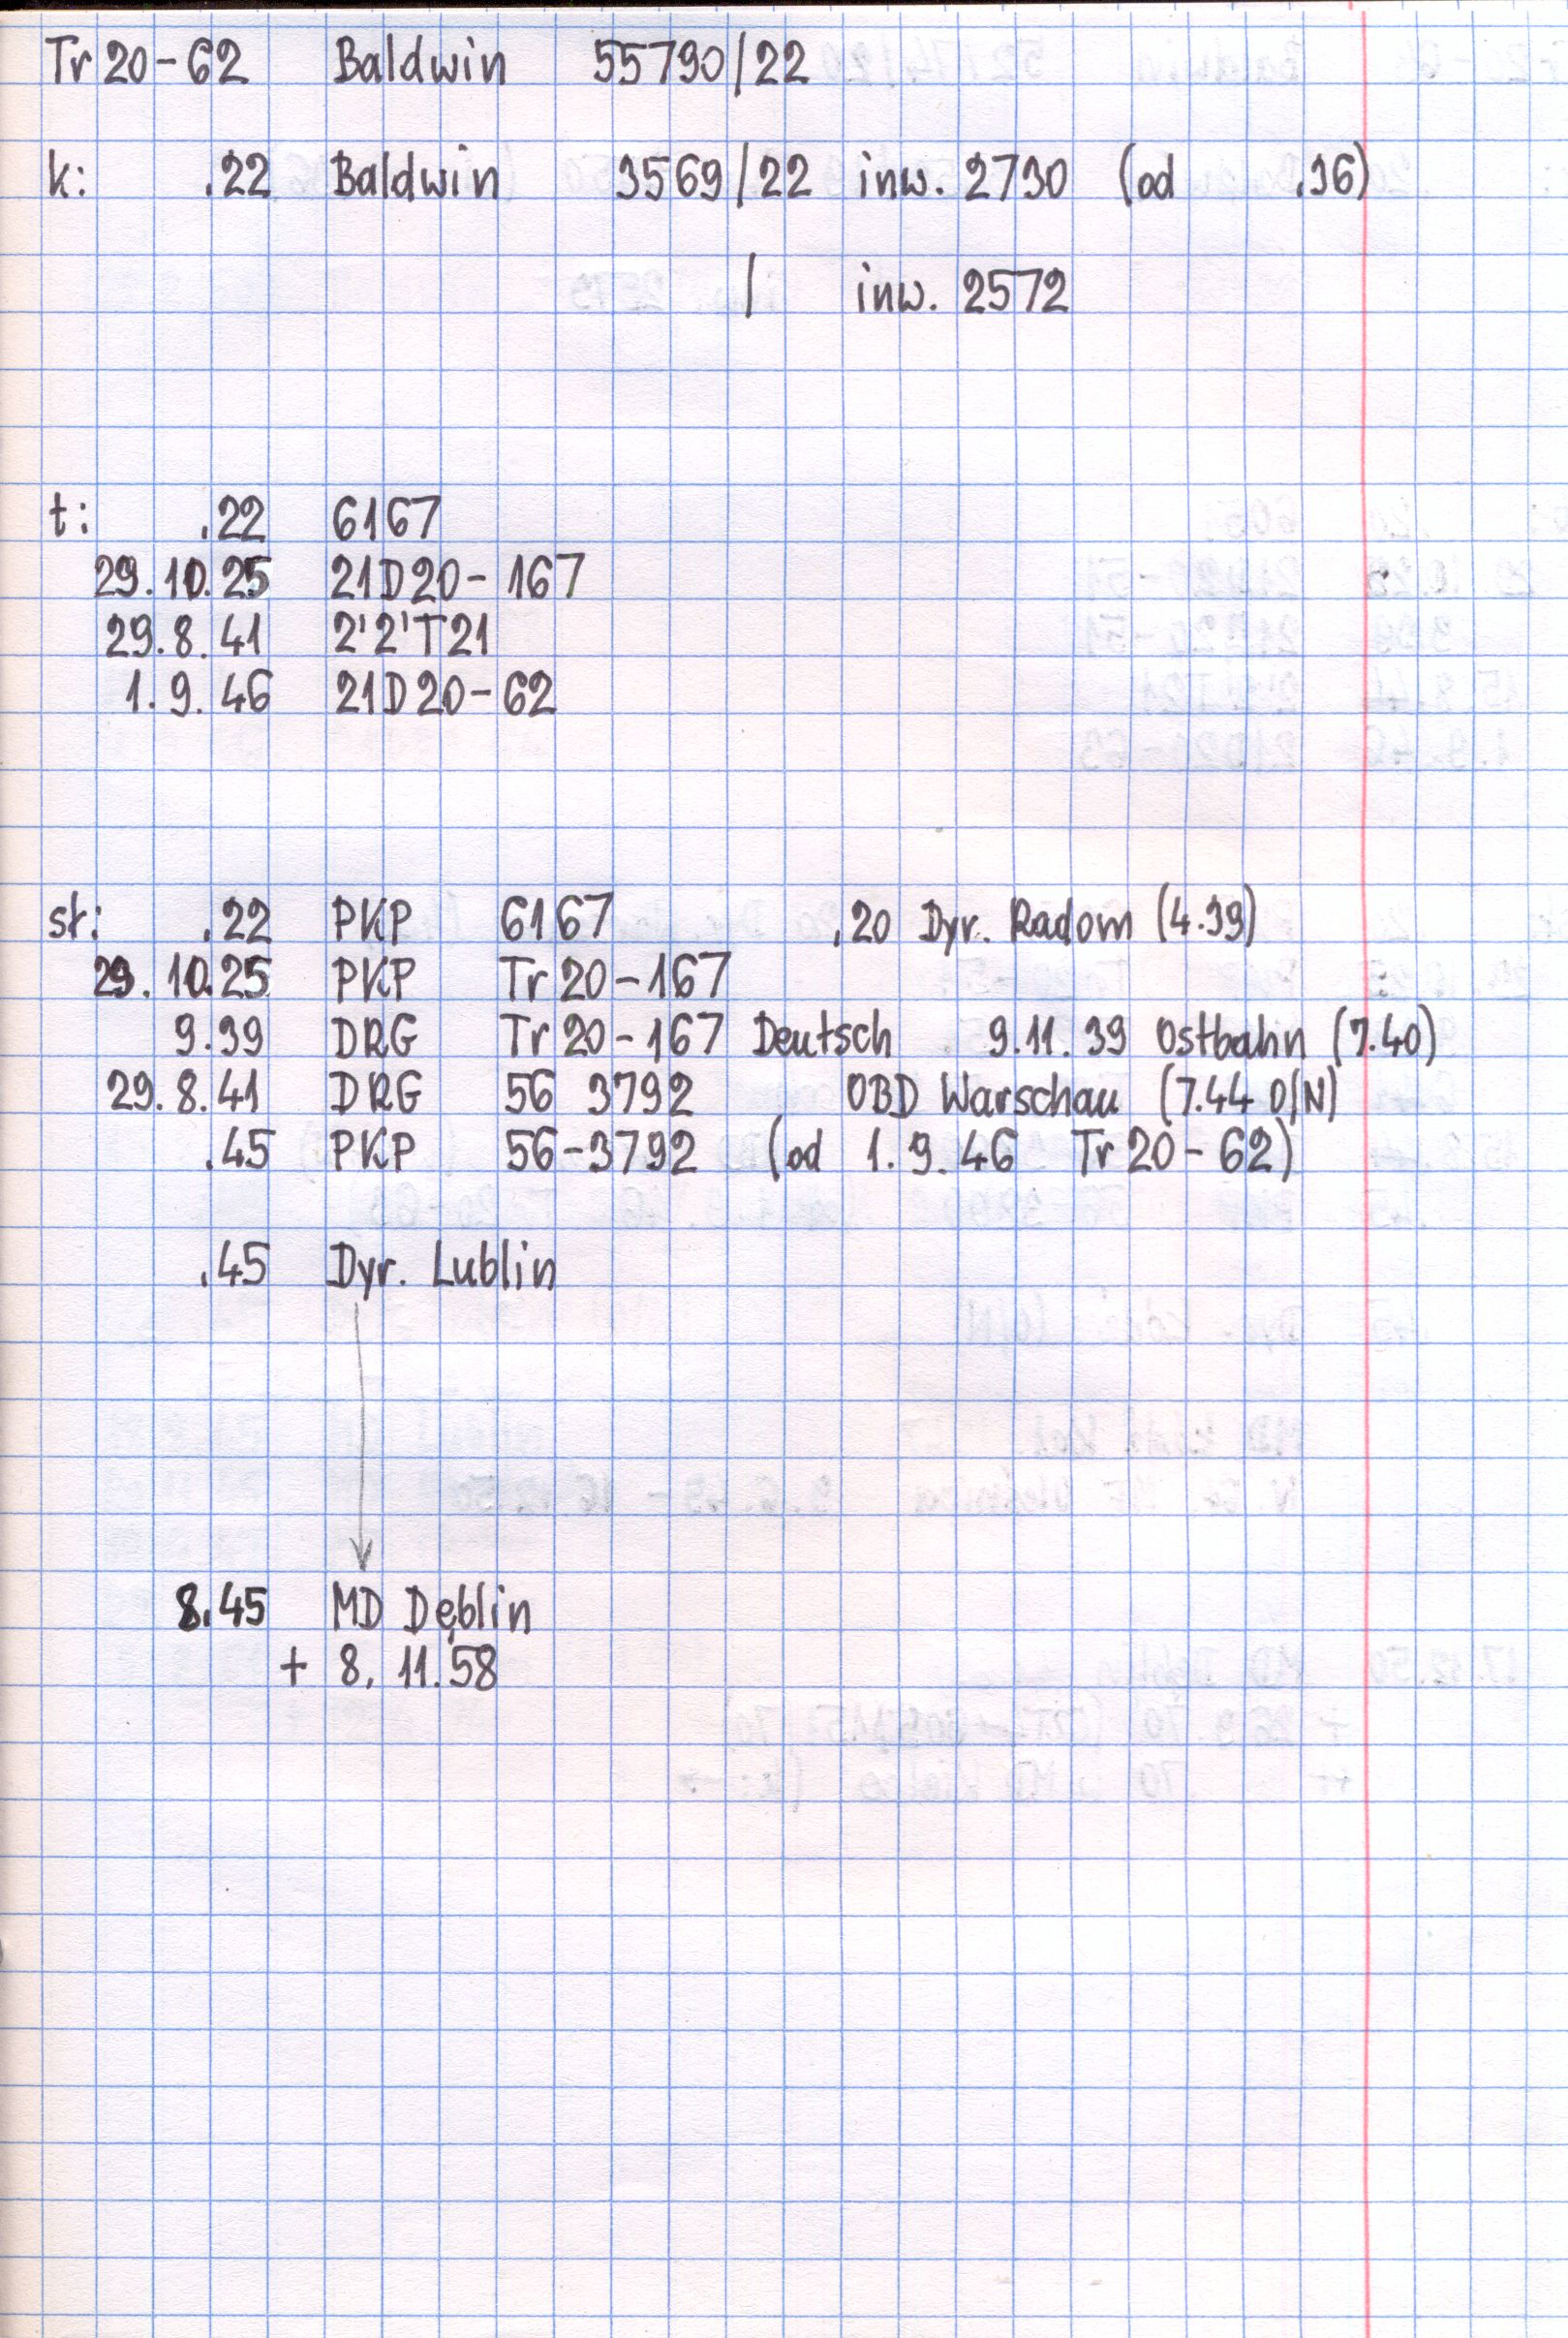 Tr 20-62 Baldwin 55790/22
k: .22 Baldwin 3569/22 inw. 2730 (od .36)
/ inw. 2572
t: .22 6167
29.10.25 21D20-167
29.8.41 2'2'T21
1.9.46 21D20-62
st: .22 PKP 6167 .20 Dyr. Radom (4.39)
29.10.25 PKP Tr 20-167
9.39 DRG Tr 20-167 Deutsch 9.11.39 Ostbahn (7.40)
29.8.41 DRG 56 3792 OBD Warschau (7.44 O/N)
.45 PKP 56-3792 (od 1.9.46 Tr 20-62)
.45 Dyr. Lublin
8.45 MD Dęblin
+ 8.11.58